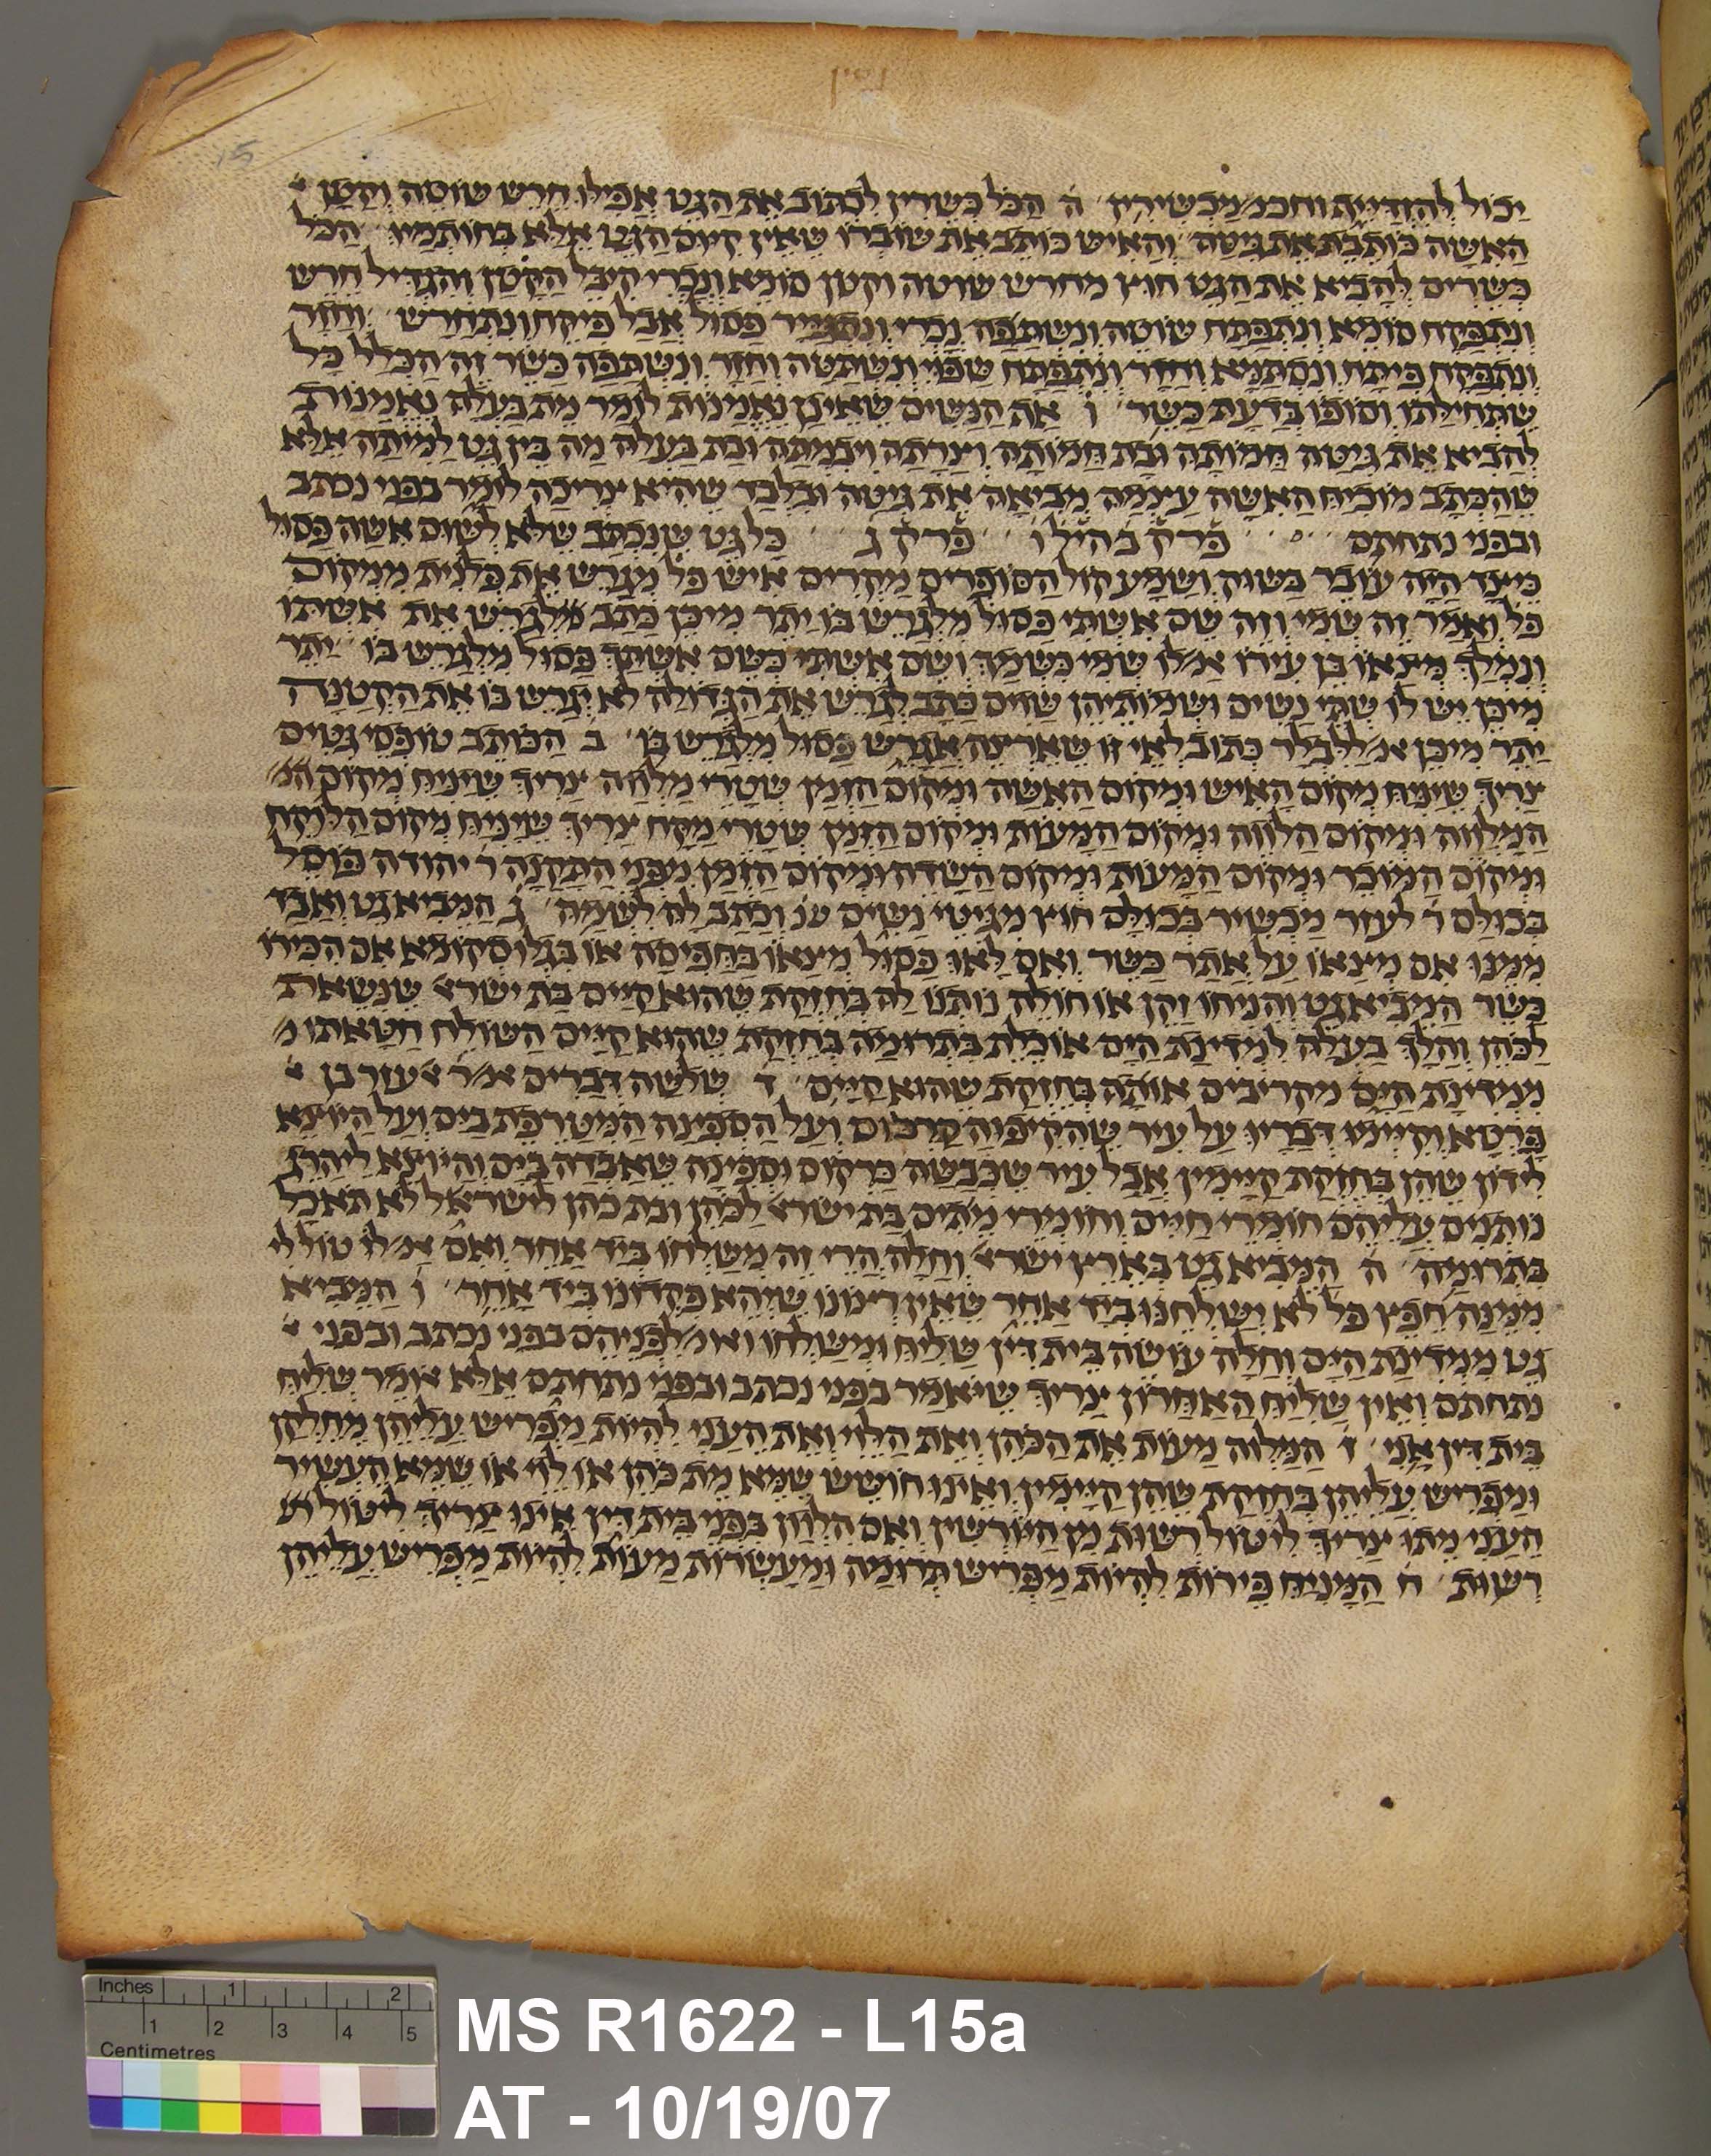 15
יכול להזדייף וחכמ׳ מכשירין ה הכל כשרין לכתוב את הגט אפילו חרש שוטה וקטן
האשה כותבת את גיטה והאיש כותב את שוברו שאין קיום הגט אלא בחותמיו הכל
כשרים להביא את הגט חוץ מחרש שוטה וקטן סומא ונכרי קיבל הקטן והגדיל חרש
ונתפקח סומא ונתפתח שוטה ונשתפה נכרי ונתגייר פסול אבל פיקח ונתחרש וחזר
ונתפקח פיתח ונסתמא וחזר ונתפתח שפוי ונשתטה וחזר ונשתפה כשר זה הכלל כל
שתחילתו וסופו בדעת כשר ו אף הנשים שאינן נאמנות לומר מת בעלה נאמנות
להביא את גיטה חמותה ובת חמותה וצרתה ויבמתה ובת בעלה מה בין גט למיתה אלא
שהכתב מוכיח האשה עצמה מביאה את גיטה ובלבד שהיא צריכה לומר בפני נכתב
ובפני נתחתם פרק ב הל׳ ו פרק ג כל גט שנכתב שלא לשום אשה פסול
כיצד היה עובר בשוק ושמע קול הסופרים מקרים איש פל׳ מגרש את פלנית ממקום
פל׳ ואמר זה שמי וזה שם אשתי פסול מלגרש בו יתר מיכן כתב לגרש את אשתו
ונמלך מצאו בן עירו אמ׳ לו שמי כשמך ושם אשתי כשם אשתך פסול מלגרש בו יתר
מיכן יש לו שתי נשים ושמותיהן שוים כתב לגרש את הגדולה לא יגרש בו את הקטנה
יתר מיכן אמ׳ ללבלר כתוב לאי זו שארצה אגרש פסול מלגרש בו ב הכותב טופסי גטים
צריך שיניח מקום האיש ומקום האשה ומקום הזמן שטרי מלוה צריך שיניח מקום המ׳
המלוה ומקום הלווה ומקום המעות ומקום הזמן שטרי מקח צריך שיניח מקום הלוקח
ומקום המוכר ומקום המעות ומקום השדה ומקום הזמן מפני התקנה ר׳ יהודה פוסל
בכולם ר׳ לעזר מכשיר בכולם חוץ מגיטי נשים שנ׳ וכתב לה לשמה ג המביא גט ואבד
ממנו אם מצאו על אתר כשר ואם לאו פסול מצאו בחפיסה או בגלוסקומא אם הכירו
כשר המביא גט והניחו זקן או חולה נותנו לה בחזקת שהוא קיים בת ישר׳ שנשאת
לכהן והלך בעלה למדינת הים אוכלת בתרומה בחזקת שהוא קיים השולח חטאתו מ׳
ממדינת הים מקריבים אותה בחזקת שהוא קיים ד שלשה דברים אמ׳ ר׳ לעזר בן
פרטא וקיימו דבריו על עיר שהקיפוה קרכום ועל הספינה המטרפת בים ועל היוצא
לידון שהן בחזקת קיימין אבל עיר שכבשה כרקום וספינה שאבדה בים והיוצא ליהרג
נותנים עליהם חומרי חיים וחומרי מתים בת ישר׳ לכהן ובת כהן לישראל לא תאכל
בתרומה ה המביא גט בארץ ישר׳ וחלה הרי זה משלחו ביד אחר ואם אמ׳ לו טול לי
ממנה חפץ פל׳ לא ישלחנו ביד אחר שאין רצונו שיהא פקדונו ביד אחר ו המביא
גט ממדינת הים וחלה עושה בית דין שליח ומשלחו ואומ׳ לפניהם בפני נכתב ובפני
נתחתם ואין שליח האחרון צריך שיאמר בפני נכתב ובפני נתחתם אלא אומר שליח
בית דין אני ז המלוה מעות את הכהן ואת הלוי ואת העני להיות מפריש עליהן מחלקן
ומפריש עליהן בחזקת שהן קיימין ואינו חושש שמא מת כהן או לוי או שמא העשיר
העני מתו צריך ליטול רשות מן היורשין ואם הלוון בפני בית דין אינו צריך ליטול
רשות ח המניח פירות להיות מפריש תרומה ומעשרות מעות להיות מפריש עליהן
Inches 1 2
1 2 3 4 5
Centimetres
MS R1622 - L15a
AT - 10/19/07